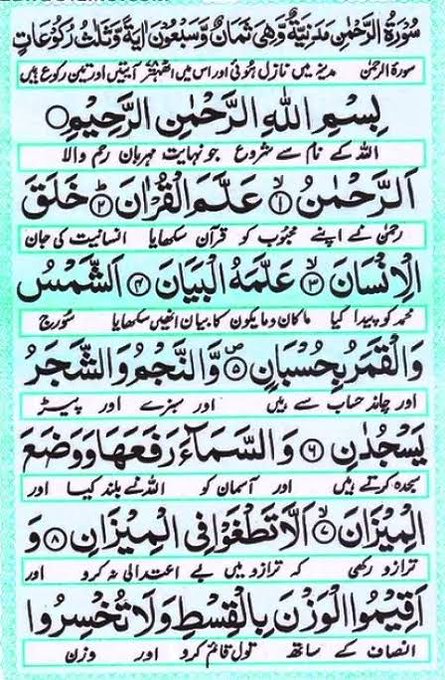 سُوْرَةُ الرَّحْمٰنِ مَدَنِيَّةٌ وَّهِيَ ثَمَانٍ وَّسَبْعُوْنَ اٰيَةً وَّثَلٰثُ رُكُوْعَاتٍ
سورۃ الرحمٰن مدینہ میں نازل ہوئی اور اس میں اٹھہتر آیتیں اور تین رکوع ہیں
بِسْمِ اللّٰهِ الرَّحْمٰنِ الرَّحِيْمِ
اللہ کے نام سے شروع جو نہایت مہربان رحم والا
اَلرَّحْمٰنُ ۙ﴿۱﴾ عَلَّمَ الْقُرْاٰنَ ؕ﴿۲﴾ خَلَقَ
رحمٰن نے اپنے محبوب کو قرآن سکھایا انسانیت کی جان
الْاِنْسَانَ ۙ﴿۳﴾ عَلَّمَهُ الْبَيَانَ ﴿۴﴾ اَلشَّمْسُ
محمد کو پیدا کیا ماکان ومایکون کا بیان انھیں سکھایا سورج
وَالْقَمَرُ بِحُسْبَانٍ ۪﴿۵﴾ وَّالنَّجْمُ وَالشَّجَرُ
اور چاند حساب سے ہیں اور سبزے اور پیڑ
يَسْجُدٰنِ ﴿۶﴾ وَالسَّمَآءَ رَفَعَهَا وَوَضَعَ
سجدہ کرتے ہیں اور آسمان کو اللہ نے بلند کیا اور
الْمِيْزَانَ ۙ﴿۷﴾ اَلَّا تَطْغَوْا فِى الْمِيْزَانِ ﴿۸﴾ وَ
ترازو رکھی کہ ترازو میں بے اعتدالی نہ کرو اور
اَقِيْمُوا الْوَزْنَ بِالْقِسْطِ وَلَا تُخْسِرُوا
انصاف کے ساتھ تول قائم کرو اور وزن